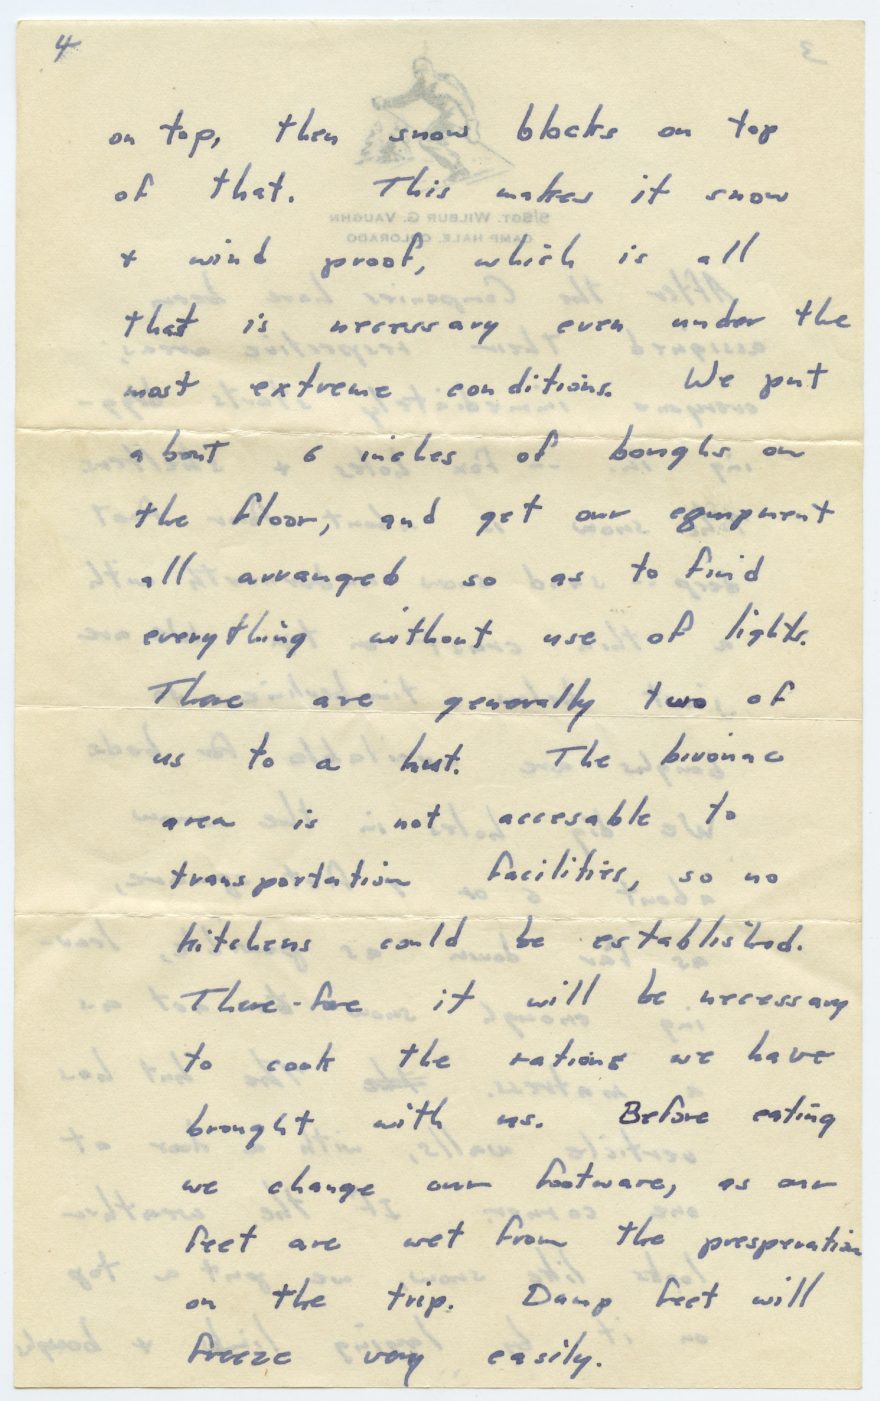 4
on top, then snow blocks on top
of that. This makes it snow
+ wind proof, which is all
that is necessary even under the
most extreme conditions. We put
about 6 inches of boughs on
the floor, and get our equipment
all arranged so as to find
everything without use of lights.
There are generally two of
us to a hut. The bivouac
area is not accesable to
transportation facilities, so no
kitchens could be established.
There-fore it will be necessary
to cook the rations we have
brought with us. Before eating
we change our footware, as our
feet are wet from the presperation
on the trip. Damp feet will
freeze very easily.